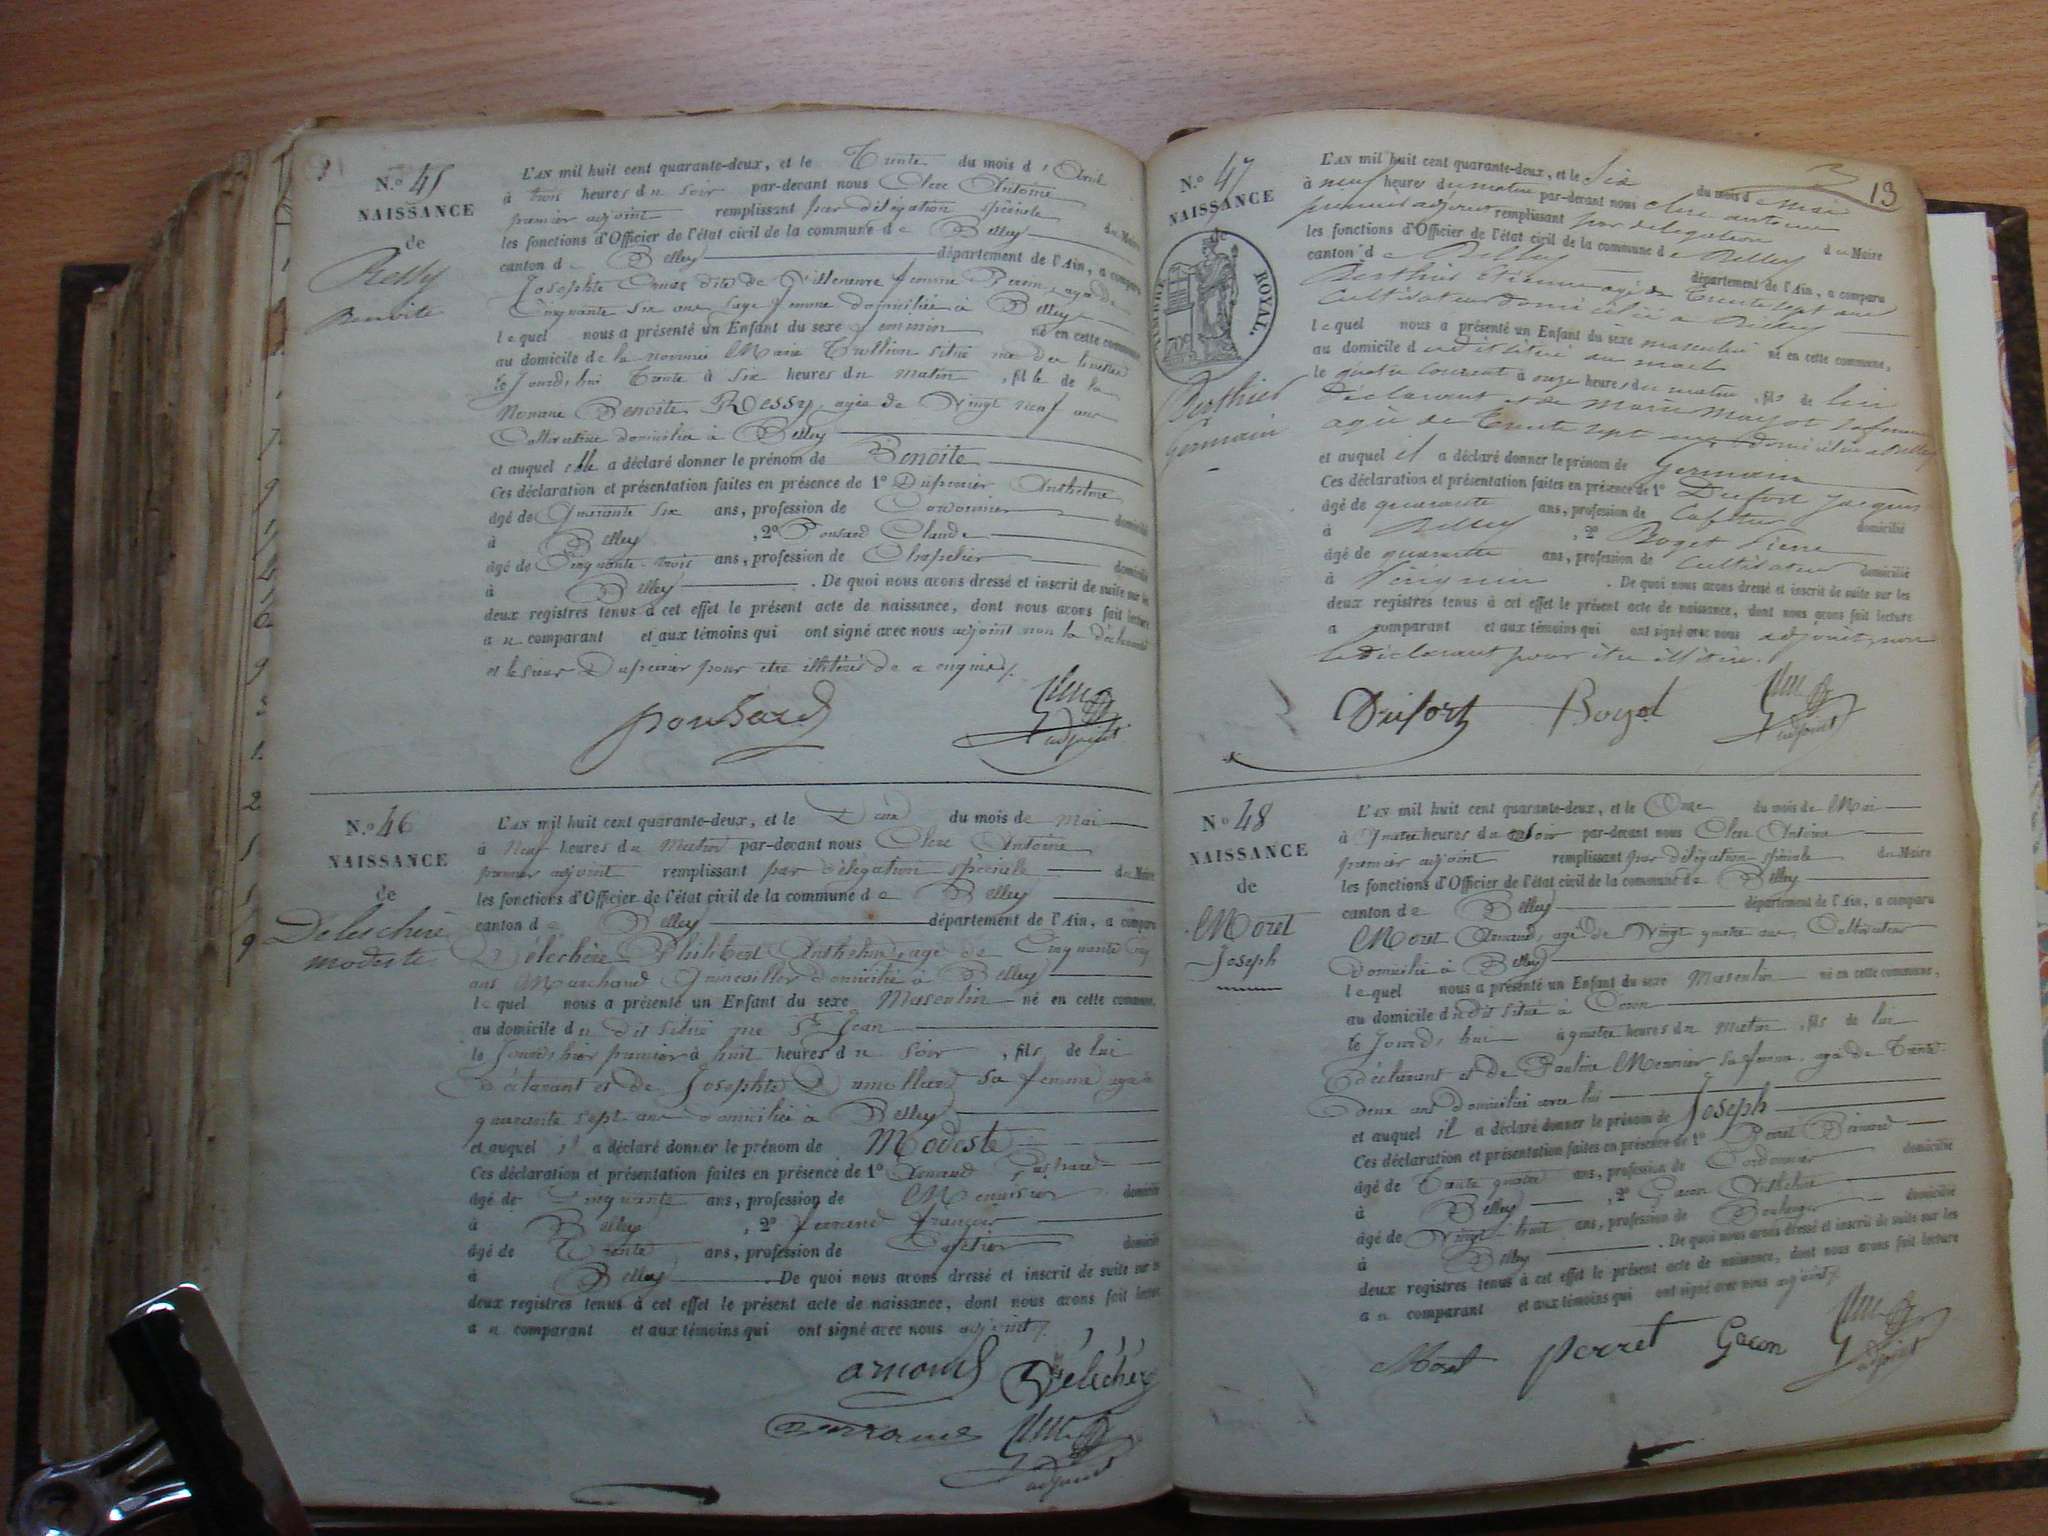 N.º 45
NAISSANCE
de
Ressy
Benoite
L'AN mil huit cent quarante-deux, et le Trente du mois d'Avril
à trois heures du soir par-devant nous Clerc Antoine
premier adjoint remplissant par délégation spéciale du Maire
les fonctions d'Officier de l'état civil de la commune de Belley
canton de Belley département de l'Ain, a comparu
Josephte dite de Villeneuve femme agée de
Cinquante six ans sage femme domiciliée à Belley
lequel nous a présenté un Enfant du sexe féminin né en cette commune
au domicile de la nommée Marie Trullion situé rue des
le Jourd'hui Trente à six heures du matin, fille de la
Nommée Benoite Ressy, agée de Vingt neuf ans
Cultivatrice domiciliée à Belley
et auquel elle a déclaré donner le prénom de Benoite
Ces déclaration et présentation faites en présence de 1º Duperier Anthelme
âgé de Quarante six ans, profession de Cordonnier domicilié
à Belley, 2º Ponsard Claude
âgé de Cinquante-trois ans, profession de Chapelier domicilié
à Belley. De quoi nous avons dressé et inscrit de suite sur les
deux registres tenus à cet effet le présent acte de naissance, dont nous avons fait lecture
au comparant et aux témoins qui ont signé avec nous adjoint non la déclarante
et le sieur Duperier pour etre illitérés de ce enquis.
ponsard
Clerc
adjoint
N.º 46
NAISSANCE
de
Delechère
Modeste
L'AN mil huit cent quarante-deux, et le Deux du mois de Mai
à Neuf heures du Matin par-devant nous Clerc Antoine
premier adjoint remplissant par délégation spéciale du Maire
les fonctions d'Officier de l'état civil de la commune de Belley
canton de Belley département de l'Ain, a comparu
Délechère Philibert Anthelme, agé de Cinquante cinq
ans Marchand Quincailler domicilié à Belley
lequel nous a présenté un Enfant du sexe Masculin né en cette commune,
au domicile du dit situé rue St Jean
le Jourd'hier premier à huit heures du soir, fils de lui
déclarant et de Josephte Dumollard sa femme agée de
quarante sept ans domiciliée à Belley
et auquel il a déclaré donner le prénom de Modeste
Ces déclaration et présentation faites en présence de 1º Arnaud
âgé de Cinquante ans, profession de Menuisier domicilié
à Belley, 2º ferrand françois
âgé de Trente ans, profession de Cafetier domicilié
à Belley. De quoi nous avons dressé et inscrit de suite sur les
deux registres tenus à cet effet le présent acte de naissance, dont nous avons fait lecture
au comparant et aux témoins qui ont signé avec nous adjoint.
arnaud Délechère
ferrand Clerc
adjoint
13
N.º 47
NAISSANCE
de
TIMBRE ROYAL.
Berthier
Germain
L'AN mil huit cent quarante-deux, et le Six du mois d Mai
à neuf heures du matin par-devant nous clerc antoine
premier adjoint remplissant par délégation du Maire
les fonctions d'Officier de l'état civil de la commune de Belley
canton de Belley département de l'Ain, a comparu
Berthier Etienne agé de Trente sept ans
Cultivateur domicilié à Belley
lequel nous a présenté un Enfant du sexe masculin né en cette commune,
au domicile du dit situé au
le quatre courant à onze heures du matin, fils de lui
déclarant et de Marie Marjot sa femme
agée de Trente sept ans domiciliée à Belley
et auquel il a déclaré donner le prénom de Germain
Ces déclaration et présentation faites en présence de 1º Dufort Jacques
âgé de quarante ans, profession de Cafetier domicilié
à Belley, 2º Boget Pierre
âgé de quarante ans, profession de Cultivateur domicilié
à Virignin. De quoi nous avons dressé et inscrit de suite sur les
deux registres tenus à cet effet le présent acte de naissance, dont nous avons fait lecture
a comparant et aux témoins qui ont signé avec nous adjoint, non
le déclarant pour être illitéré.
Dufort Boget Clerc
adjoint
Nº 48
NAISSANCE
de
Moret
Joseph
L'AN mil huit cent quarante-deux, et le Onze du mois de Mai
à Quatre heures du soir par-devant nous Clerc Antoine
premier adjoint remplissant par délégation spéciale du Maire
les fonctions d'Officier de l'état civil de la commune de Belley
canton de Belley département de l'Ain, a comparu
Moret Arnaud, agé de Vingt quatre ans Cultivateur
domicilié à Belley
lequel nous a présenté un Enfant du sexe Masculin né en cette commune,
au domicile du dit situé à Coron
le Jourd'hui à quatre heures du Matin, fils de lui
déclarant et de Pauline Monnier, sa femme, agée de Trente
deux ans domiciliée avec lui
et auquel il a déclaré donner le prénom de Joseph
Ces déclaration et présentation faites en présence de 1º Perret Bernard
âgé de Trente quatre ans, profession de Cordonnier domicilié
à Belley, 2º Gacon Anthelme
âgé de Vingt-huit ans, profession de Boulanger domicilié
à Belley. De quoi nous avons dressé et inscrit de suite sur les
deux registres tenus à cet effet le présent acte de naissance, dont nous avons fait lecture
au comparant et aux témoins qui ont signé avec nous adjoint.
Moret perret Gacon Clerc
adjoint